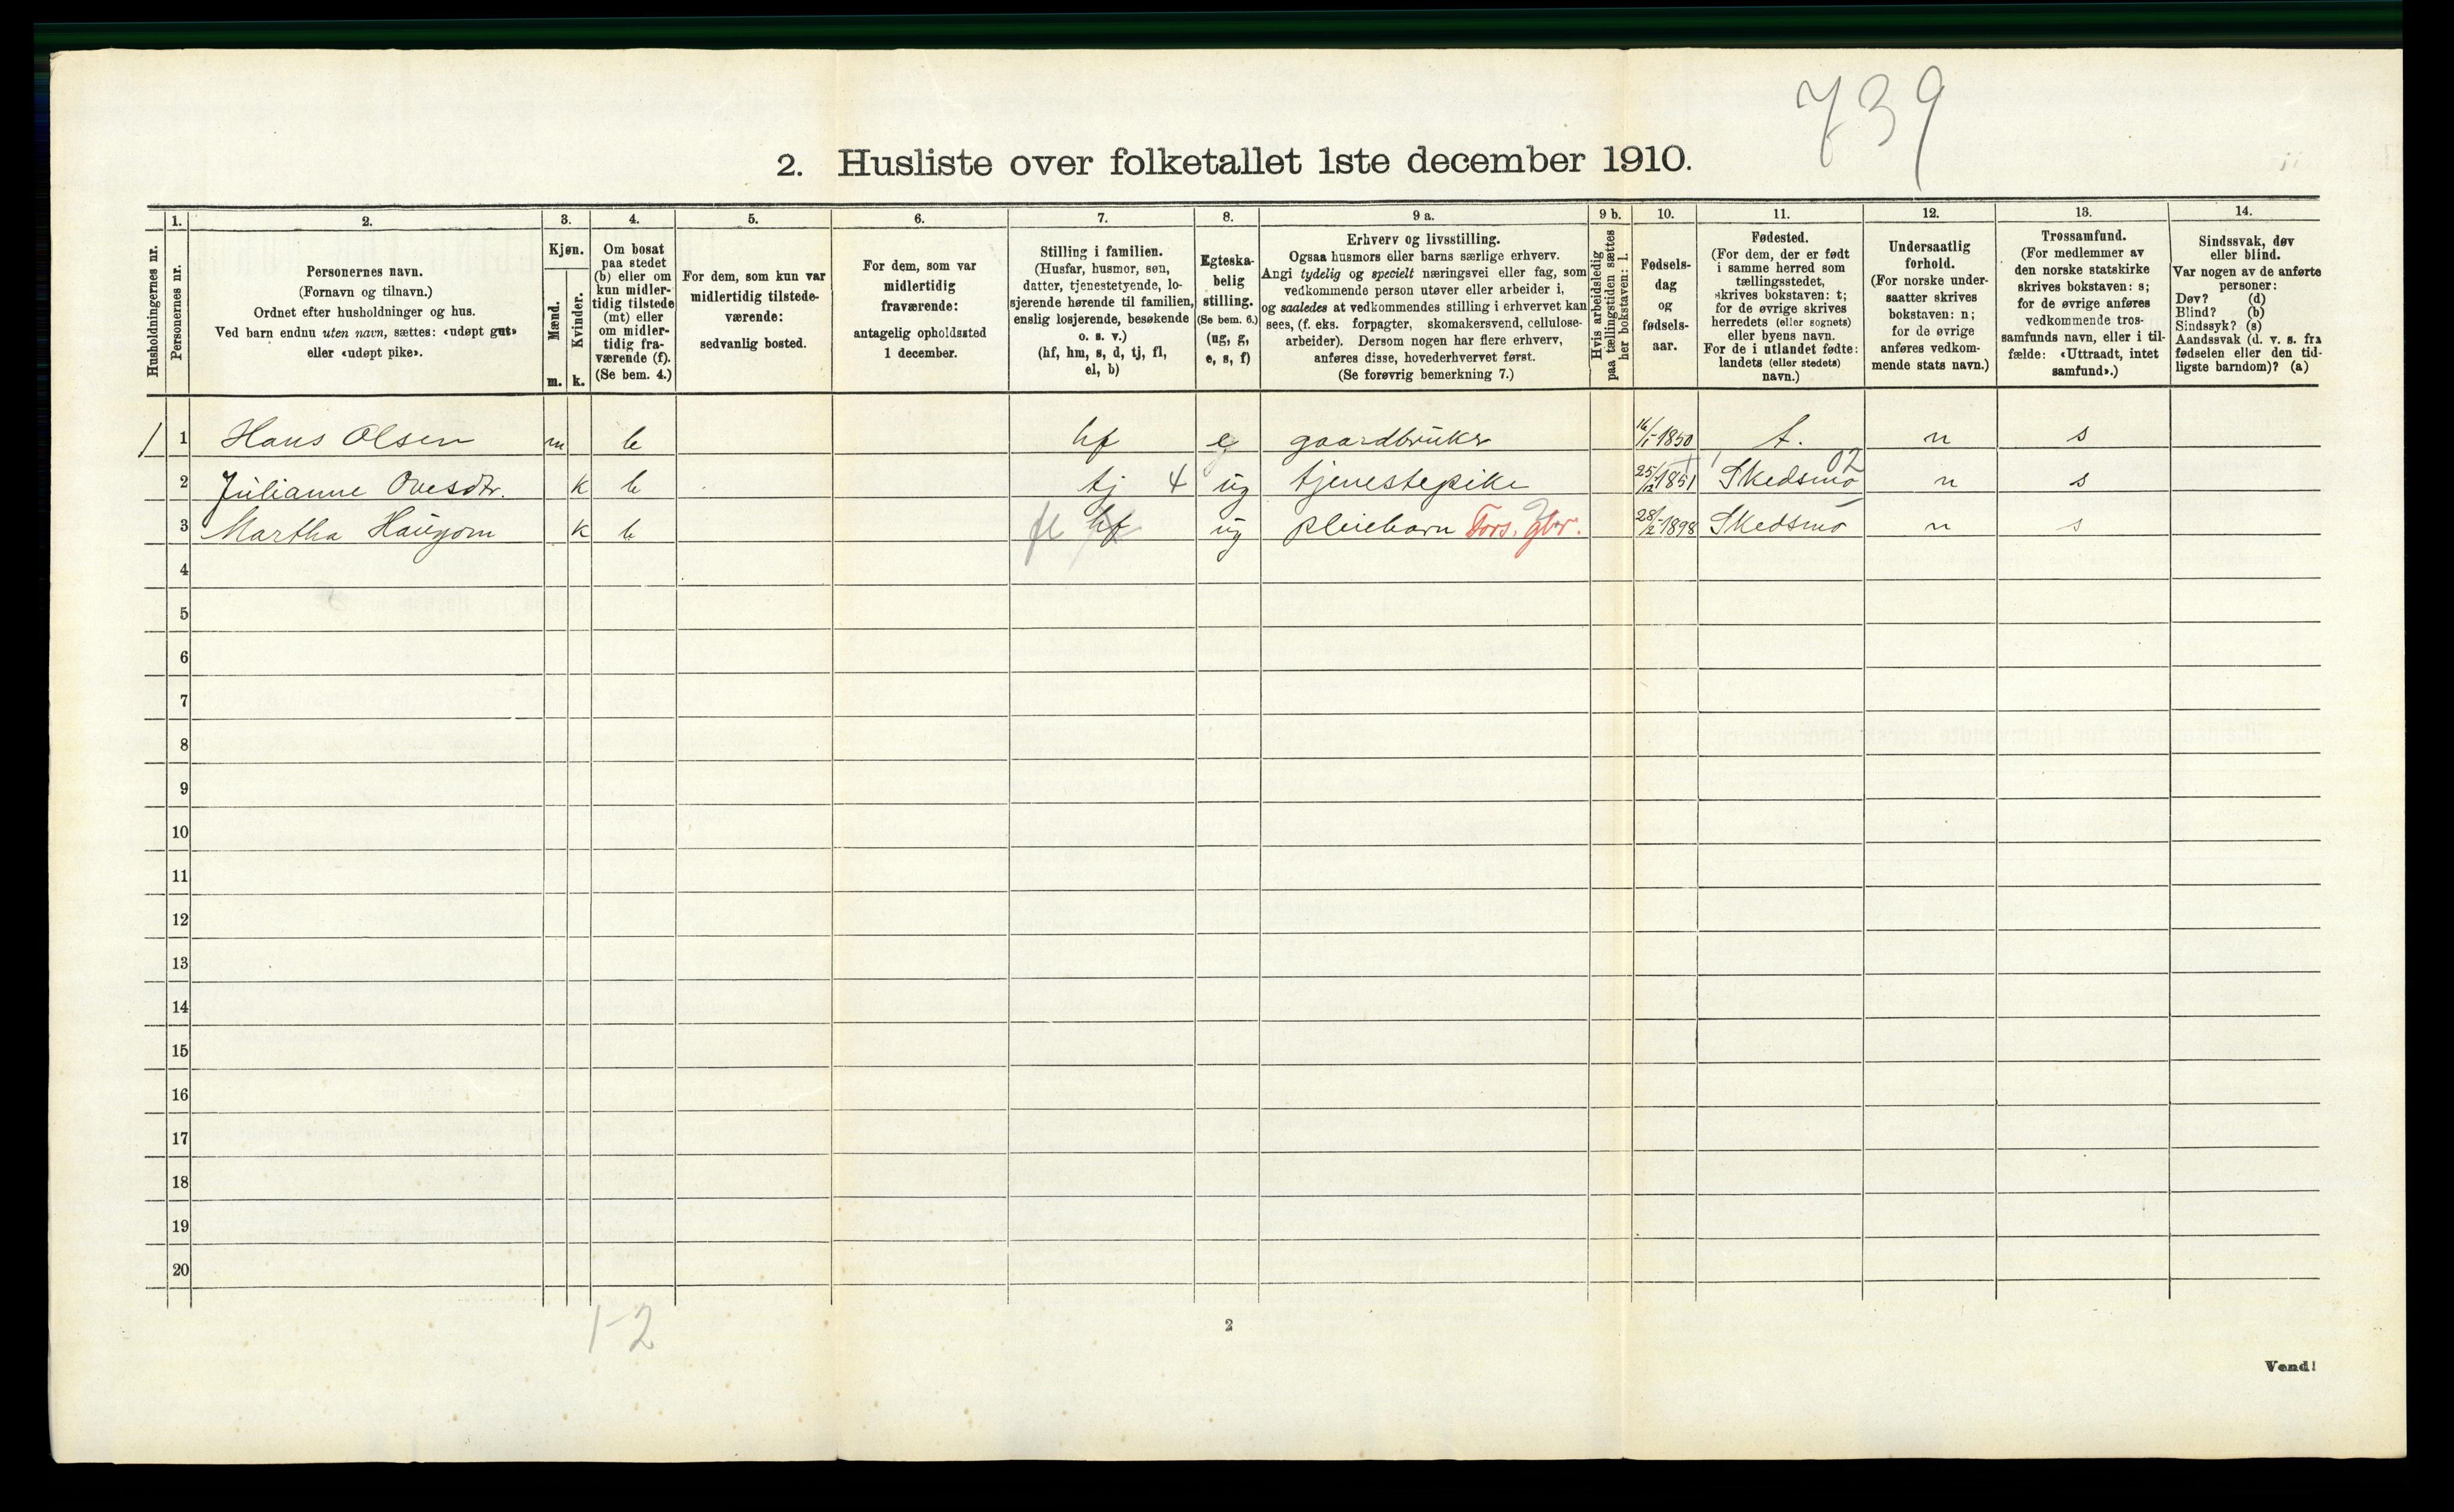 739
2. Husliste over folketallet 1ste december 1910.
Husholdningernes nr.
1.
Personernes nr.
2.
Personernes navn.
(Fornavn og tilnavn.)
Ordnet efter husholdninger og hus.
Ved barn endnu uten navn, sættes: «udøpt gut»
eller «udøpt pike».
3.
Kjøn.
Mænd.
m.
Kvinder.
k.
4.
Om bosat
paa stedet
(b) eller om
kun midler-
tidig tilstede
(mt) eller
om midler-
tidig fra-
værende (f).
(Se bem. 4.)
5.
For dem, som kun var
midlertidig tilstede-
værende:
sedvanlig bosted.
6.
For dem, som var
midlertidig
fraværende:
antagelig opholdssted
1 december.
7.
Stilling i familien.
(Husfar, husmor, søn,
datter, tjenestetyende, lo-
sjerende hørende til familien,
enslig losjerende, besøkende
o. s. v.)
(hf, hm, s, d, tj, fl,
el, b)
8.
Egteska-
belig
stilling.
(Se bem. 6.)
(ug, g,
e, s, f)
9 a.
Erhverv og livsstilling.
Ogsaa husmors eller barns særlige erhverv.
Angi tydelig og specielt næringsvei eller fag, som
vedkommende person utøver eller arbeider i,
og saaledes at vedkommendes stilling i erhvervet kan
sees, (f. eks. forpagter, skomakersvend, cellulose-
arbeider). Dersom nogen har flere erhverv,
anføres disse, hovederhvervet først.
(Se forøvrig bemerkning 7.)
9 b.
Hvis arbeidsledig
paa tællingstiden sættes
her bokstaven: l.
10.
Fødsels-
dag
og
fødsels-
aar.
11.
Fødested.
(For dem, der er født
i samme herred som
tællingsstedet,
skrives bokstaven: t;
for de øvrige skrives
herredets (eller sognets)
eller byens navn.
For de i utlandet fødte:
landets (eller stedets)
navn.)
12.
Undersaatlig
forhold.
(For norske under-
saatter skrives
bokstaven: n;
for de øvrige
anføres vedkom-
mende stats navn.)
13.
Trossamfund.
(For medlemmer av
den norske statskirke
skrives bokstaven: s;
for de øvrige anføres
vedkommende tros-
samfunds navn, eller i til-
fælde: «Uttraadt, intet
samfund».)
14.
Sindssvak, døv
eller blind.
Var nogen av de anførte
personer:
Døv? (d)
Blind? (b)
Sindssyk? (s)
Aandssvak (d. v. s. fra
fødselen eller den tid-
ligste barndom)? (a)
1 1 Hans Olsen m b hf e gaardbruker 16/1-1850 t. n s
2 Julianne Ovesdtr. k b tj 4 ug tjenestepike 25/12 1851 Skedsmo 02 n s
3 Martha Haugom k b fl hf ug pleiebarn Fors. gbr. 28/2-1898 Skedsmo n s
4
5
6
7
8
9
10
11
12
13
14
15
16
17
18
19
20
1-2
2
Vend!